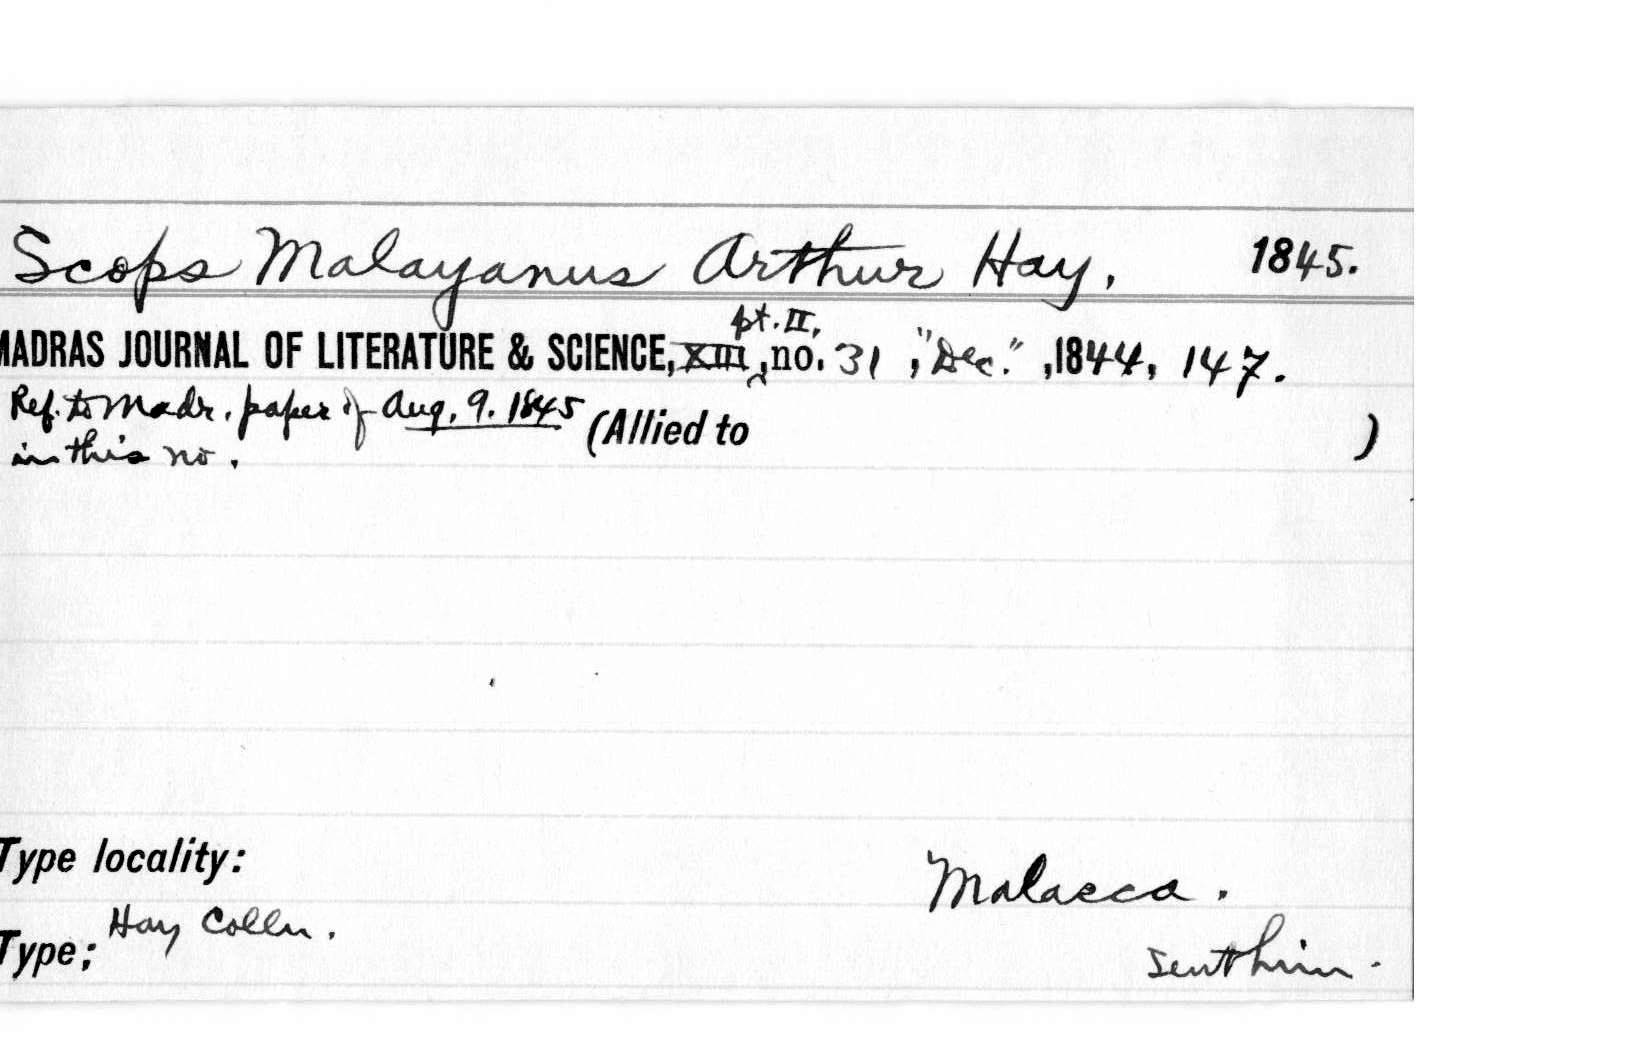 Scops Malayanus Arthur Hay, 1845.
pt. II,
MADRAS JOURNAL OF LITERATURE & SCIENCE, XIII, no. 31, "Dec.", 1844, 147.
Ref. to Madr. paper of Aug. 9. 1845
in this no.
(Allied to )
Type locality: Malacca.
Type; Hay Colln. sent him.